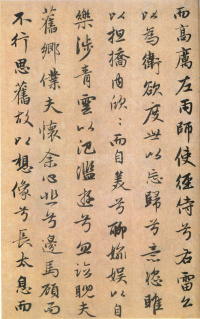 而高厲左雨師使徑侍兮右雷公
以為衛欲度世以忘歸兮意恣睢
以担撟內欣〻而自美兮聊媮娛以自
樂涉青雲以汜濫遊兮忽臨睨夫
舊鄉僕夫懷余心悲兮邊馬顧而
不行思舊故以想像兮長太息而